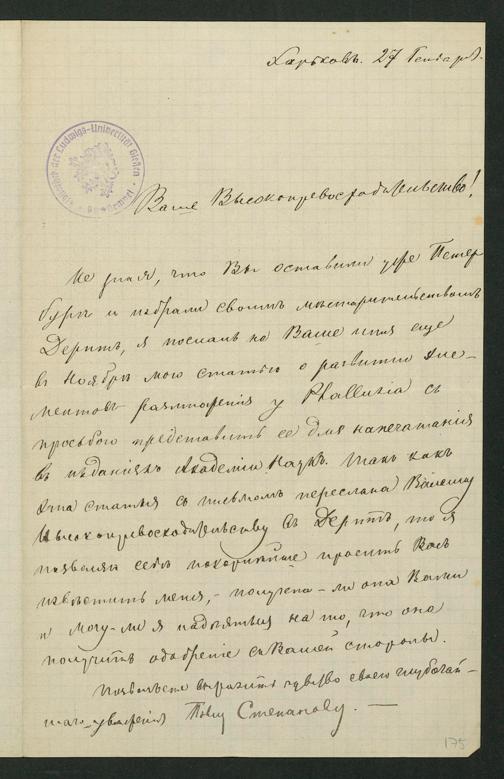 Харьковъ. 27 Генваря.
Bibliothek der Ludwigs-Universität Gießen
Ваше Высокопревосходительство!
Не зная, что Вы оставили уже Петер
бургъ и избрали своимъ мѣстожительствомъ
Дерптъ, я послалъ на Ваше имя еще
въ Ноябрѣ мою статью о развитіи эле-
ментовъ размноженія у Phallusia съ
просьбою представить ее для напечатанія
въ изданіяхъ Академіи Наукъ. Такъ какъ
эта статья съ письмомъ переслана Вашему
Высокопревосходительству въ Дерптъ, то я
позволяю себѣ покорнѣйше просить Васъ
извѣстить меня, - получена-ли она Вами
и могу-ли я надѣяться на то, что она
получитъ одобреніе съ Вашей стороны.
Позвольте выразить чувство своего глубочай-
шаго уваженія Степанову. —
175